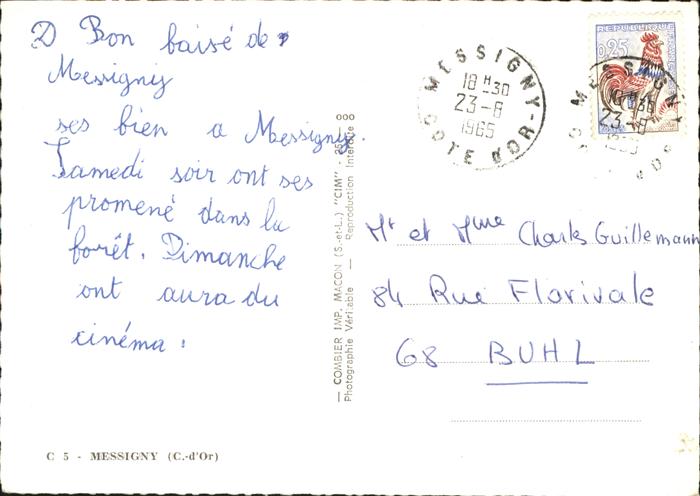 D Bon baisé de
Messigniy
ses bien a Messigniy.
Samedi soir ont ses
promené dans la
forêt. Dimanche
ont aura du
cinéma.
C 5 - MESSIGNY (C.-d'Or)
— COMBIER IMP. MACON (S.-et-L.) "CIM" -
Photographie Véritable — Reproduction Interdite
MESSIGNY
18 H 30
23-8
1965
COTE D'OR
REPUBLIQUE FRANÇAISE
0,25
Mr et Mme Charles Guillemann
84 Rue Florivale
68 BUHL